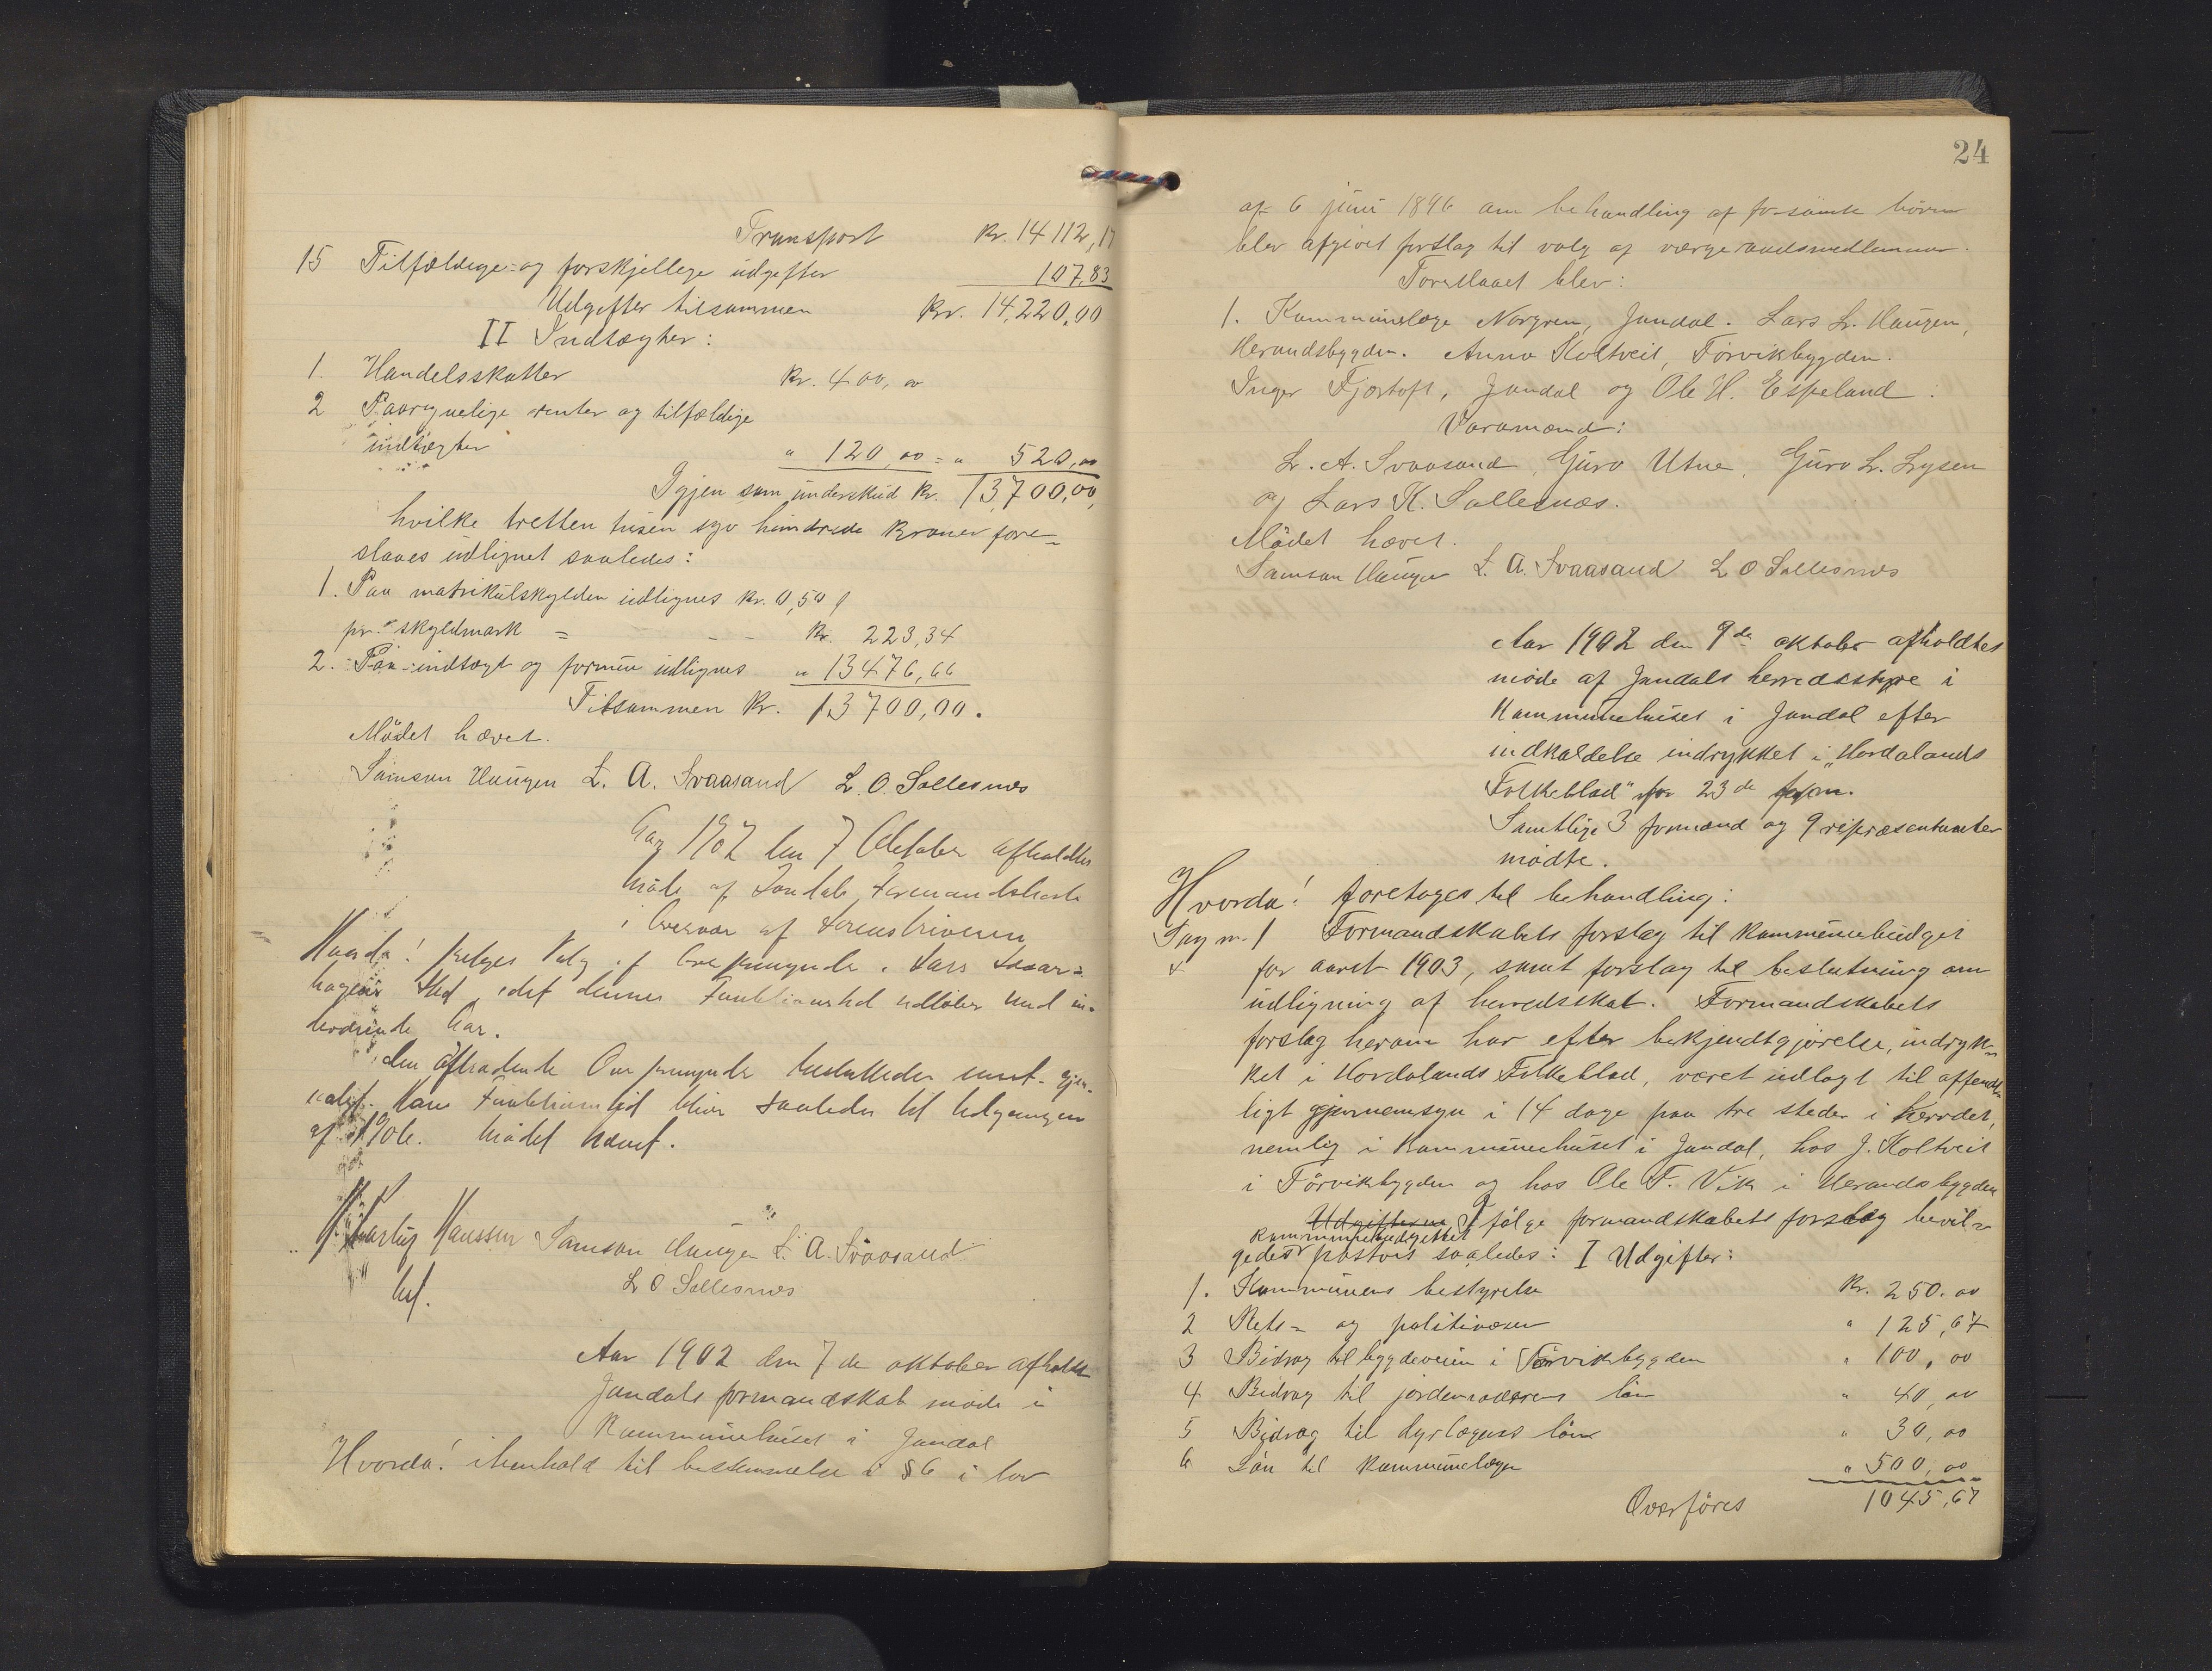 Transport Kr. 14112,17
15 Tilfældige- og forskjellige udgifter 107,83
Udgifter tilsammen Kr. 14,220,00
II Indtægter:
1. Handelsskatter Kr. 400,00
2 Paaregnelige renter og tilfældige
indtægter " 120,00 = " 520,00
Igjen som underskud Kr. 13,700,00,
hvilke tretten tusen syv hundrede kroner fore-
slaaes udlignet saaledes:
1. Paa matrikulskylden udlignes Kr. 0,50
pr. skyldmark = - - Kr. 223,34
2. Paa indtægt og formue udlignes " 13476,66
Tilsammen Kr. 13700,00.
Mødet hævet.
Samson Haugen L. A. Svaasand L. O. Sallesnæs
Aar 1902 den 7 Oktober afholdtes
Møde af Jondals Formandskab
i Overvær af Sorenskriveren
Hvorda! Valg af Overformynder i Lars
Sted, idet dennes Funktionstid udløber med in-
deværende Aar.
Den aftrædende Overformynder besluttedes gjen-
valgt. Hans Funktionstid bliver saaledes til Udgangen
af 1906. Mødet hævet.
Hartvig Hanssen Samson Haugen L. A. Svaasand
L O Sallesnæs
Aar 1902 den 7de oktober afholdt
Jondals formandskab møde i
Kommunehuset i Jondal
Hvorda! i henhold til bestemmelse i § 6 i lov
24
af 6 juni 1896 om behandling af forsømte børn
blev afgivet forslag til valg af værgeraadsmedlemmer.
Foreslaaet blev:
1. Kommunelæge Norgren, Jondal. Lars L. Haugen,
Herandsbygden. Anna Koltveit, Törvikbygden.
Inger Fjærtoft, Jondal og Ole H. Espeland.
Varamænd:
L. A. Svaasand, Guro Utne, Guro L. Lysen
og Lars K. Sallesnæs.
Mødet hævet.
Samson Haugen L. A. Svaasand L O Sallesnæs
Aar 1902 den 9de oktober afholdtes
møde af Jondals herredsstyre i
Kommunehuset i Jondal efter
indkaldelse indrykket i "Hordalands
Folkeblad" for 23de
Samtlige 3 formænd og 9 repræsentanter
mødte.
Hvorda! foretoges til behandling:
Sag nr. 1 Formandskabets forslag til kommunebudget
for aaret 1903, samt forslag til beslutning om
udligning af herredsskat. Formandskabets
forslag herom har efter bekjendtgjørelse, indryk-
ket i Hordalands Folkeblad, været udlagt til offent-
ligt gjennemsyn i 14 dage paa tre steder i herredet,
nemlig i Kommunehuset i Jondal, hos J. Koltveit
i Törvikbygden og hos Ole T. Vik i Herandsbygden
Udgifterne I følge formandskabets forslag bevil-
kommunebudgettet
gedes postvis saaledes: I Udgifter:
1. Kommunens bestyrelse Kr. 250.00
2 Rets- og politivæsen " 125,67
3 Bidrag til bygdeveien i Törvikbygden " 100,00
4 Bidrag til jordemoderens løn " 40,00
5 Bidrag til dyrlægens løn " 30,00
6 Løn til kommunelægen " 500,00
Overføres 1045,67